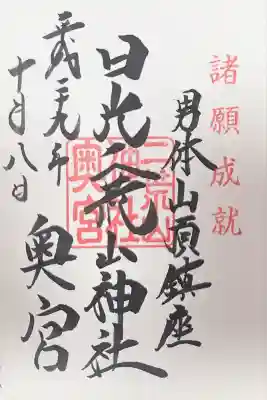 諸願成就
男体山頂鎮座
日光二荒山神社
奥宮
二荒山
神社
奥宮
平成二十九年
十月八日